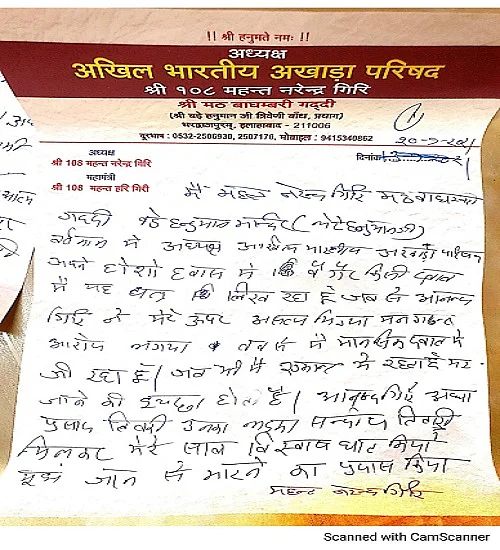 !! श्री हनुमते नमः !!
अध्यक्ष
अखिल भारतीय अखाड़ा परिषद
श्री १०८ महन्त नरेन्द्र गिरि
श्री मठ बाघम्बरी गद्दी
(श्री बड़े हनुमान जी त्रिवेणी बाँध, प्रयाग)
भरद्वाजपुरम्, इलाहाबाद - 211006
दूरभाष : 0532-2506930, 2507176, मोबाइल : 9415340862
1
अध्यक्ष
श्री 108 महन्त नरेन्द्र गिरि
महामंत्री
श्री 108 महन्त हरि गिरी
दिनांक
मैं महन्त नरेन्द्र गिरि मठ बाघम्बरी
गद्दी बड़े हनुमान मन्दिर (लेटे हनुमानजी)
वर्तमान में अध्यक्ष अखिल भारतीय अखाड़ा परिषद
अपने होशो हवास में बगैर किसी दबाव
में यह पत्र लिख रहा हूँ जब से आनन्द
गिरि ने मेरे ऊपर असत्य मिथ्या मनगढन्त
आरोप लगाया तब से मैं मानसिक दबाव में
जी रहा हूँ। जब भी मैं एकान्त में रहता हूँ मर
जाने की इच्छा होती है। आनन्द गिरि, अद्या
प्रसाद तिवारी उनका लड़का सन्दीप तिवारी
मिलकर मेरे साथ विस्वास घात किया
मुझे जान से मारने का प्रयास किया
महन्त नरेन्द्र गिरि
Scanned with CamScanner